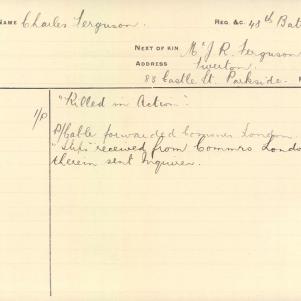 NAME Charles Ferguson. REG. &C. 48th Bat
NEXT OF KIN Mr J R. Ferguson
ADDRESS Tiverton
88 Castle St. Parkside.
"Killed in Action".
1/P A/Cable forwarded Commr London
"Slips" received from Commrs Lond
therein sent Inquirer.